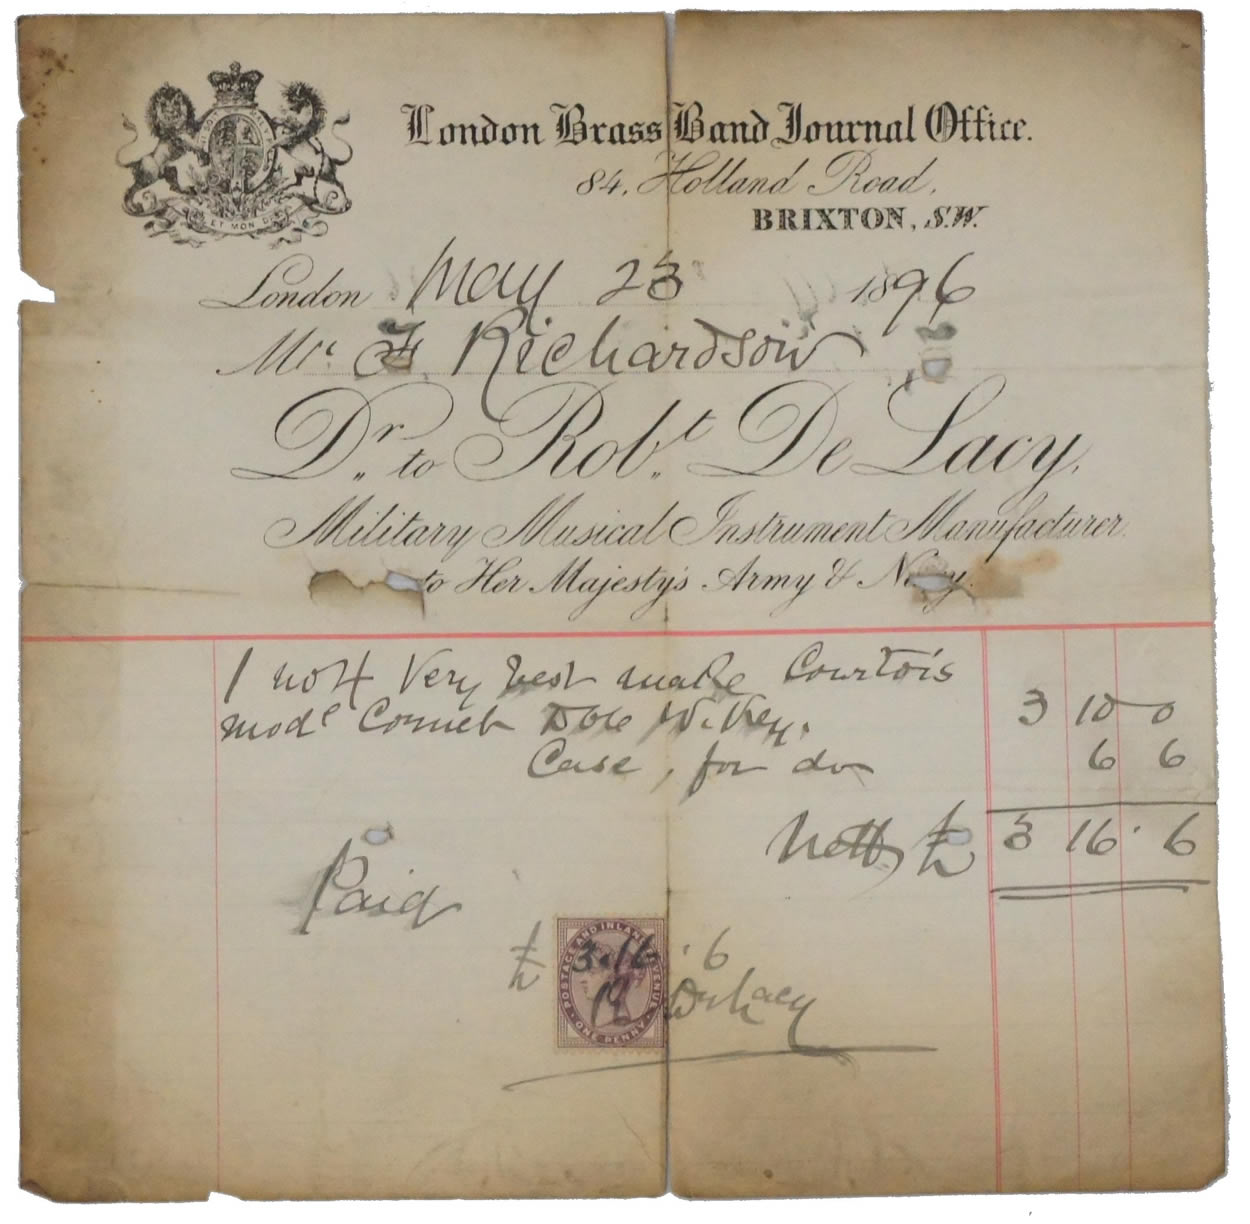 London Brass Band Journal Office.
84, Holland Road,
BRIXTON, S.W.
ET MON
London May 23 1896
Mr. F Richardson
Dr. to Robt. De Lacy,
Military Musical Instrument Manufacturer
to Her Majesty's Army & Navy.
1 Very best make Courtois
Modl Cornet Dble W. Key. 3 10 0
Case, for do 6 6
Nett £ 3 16 . 6
Paid
POSTAGE AND INLAND REVENUE
£ 3.16 . 6
R De Lacy
ONE PENNY